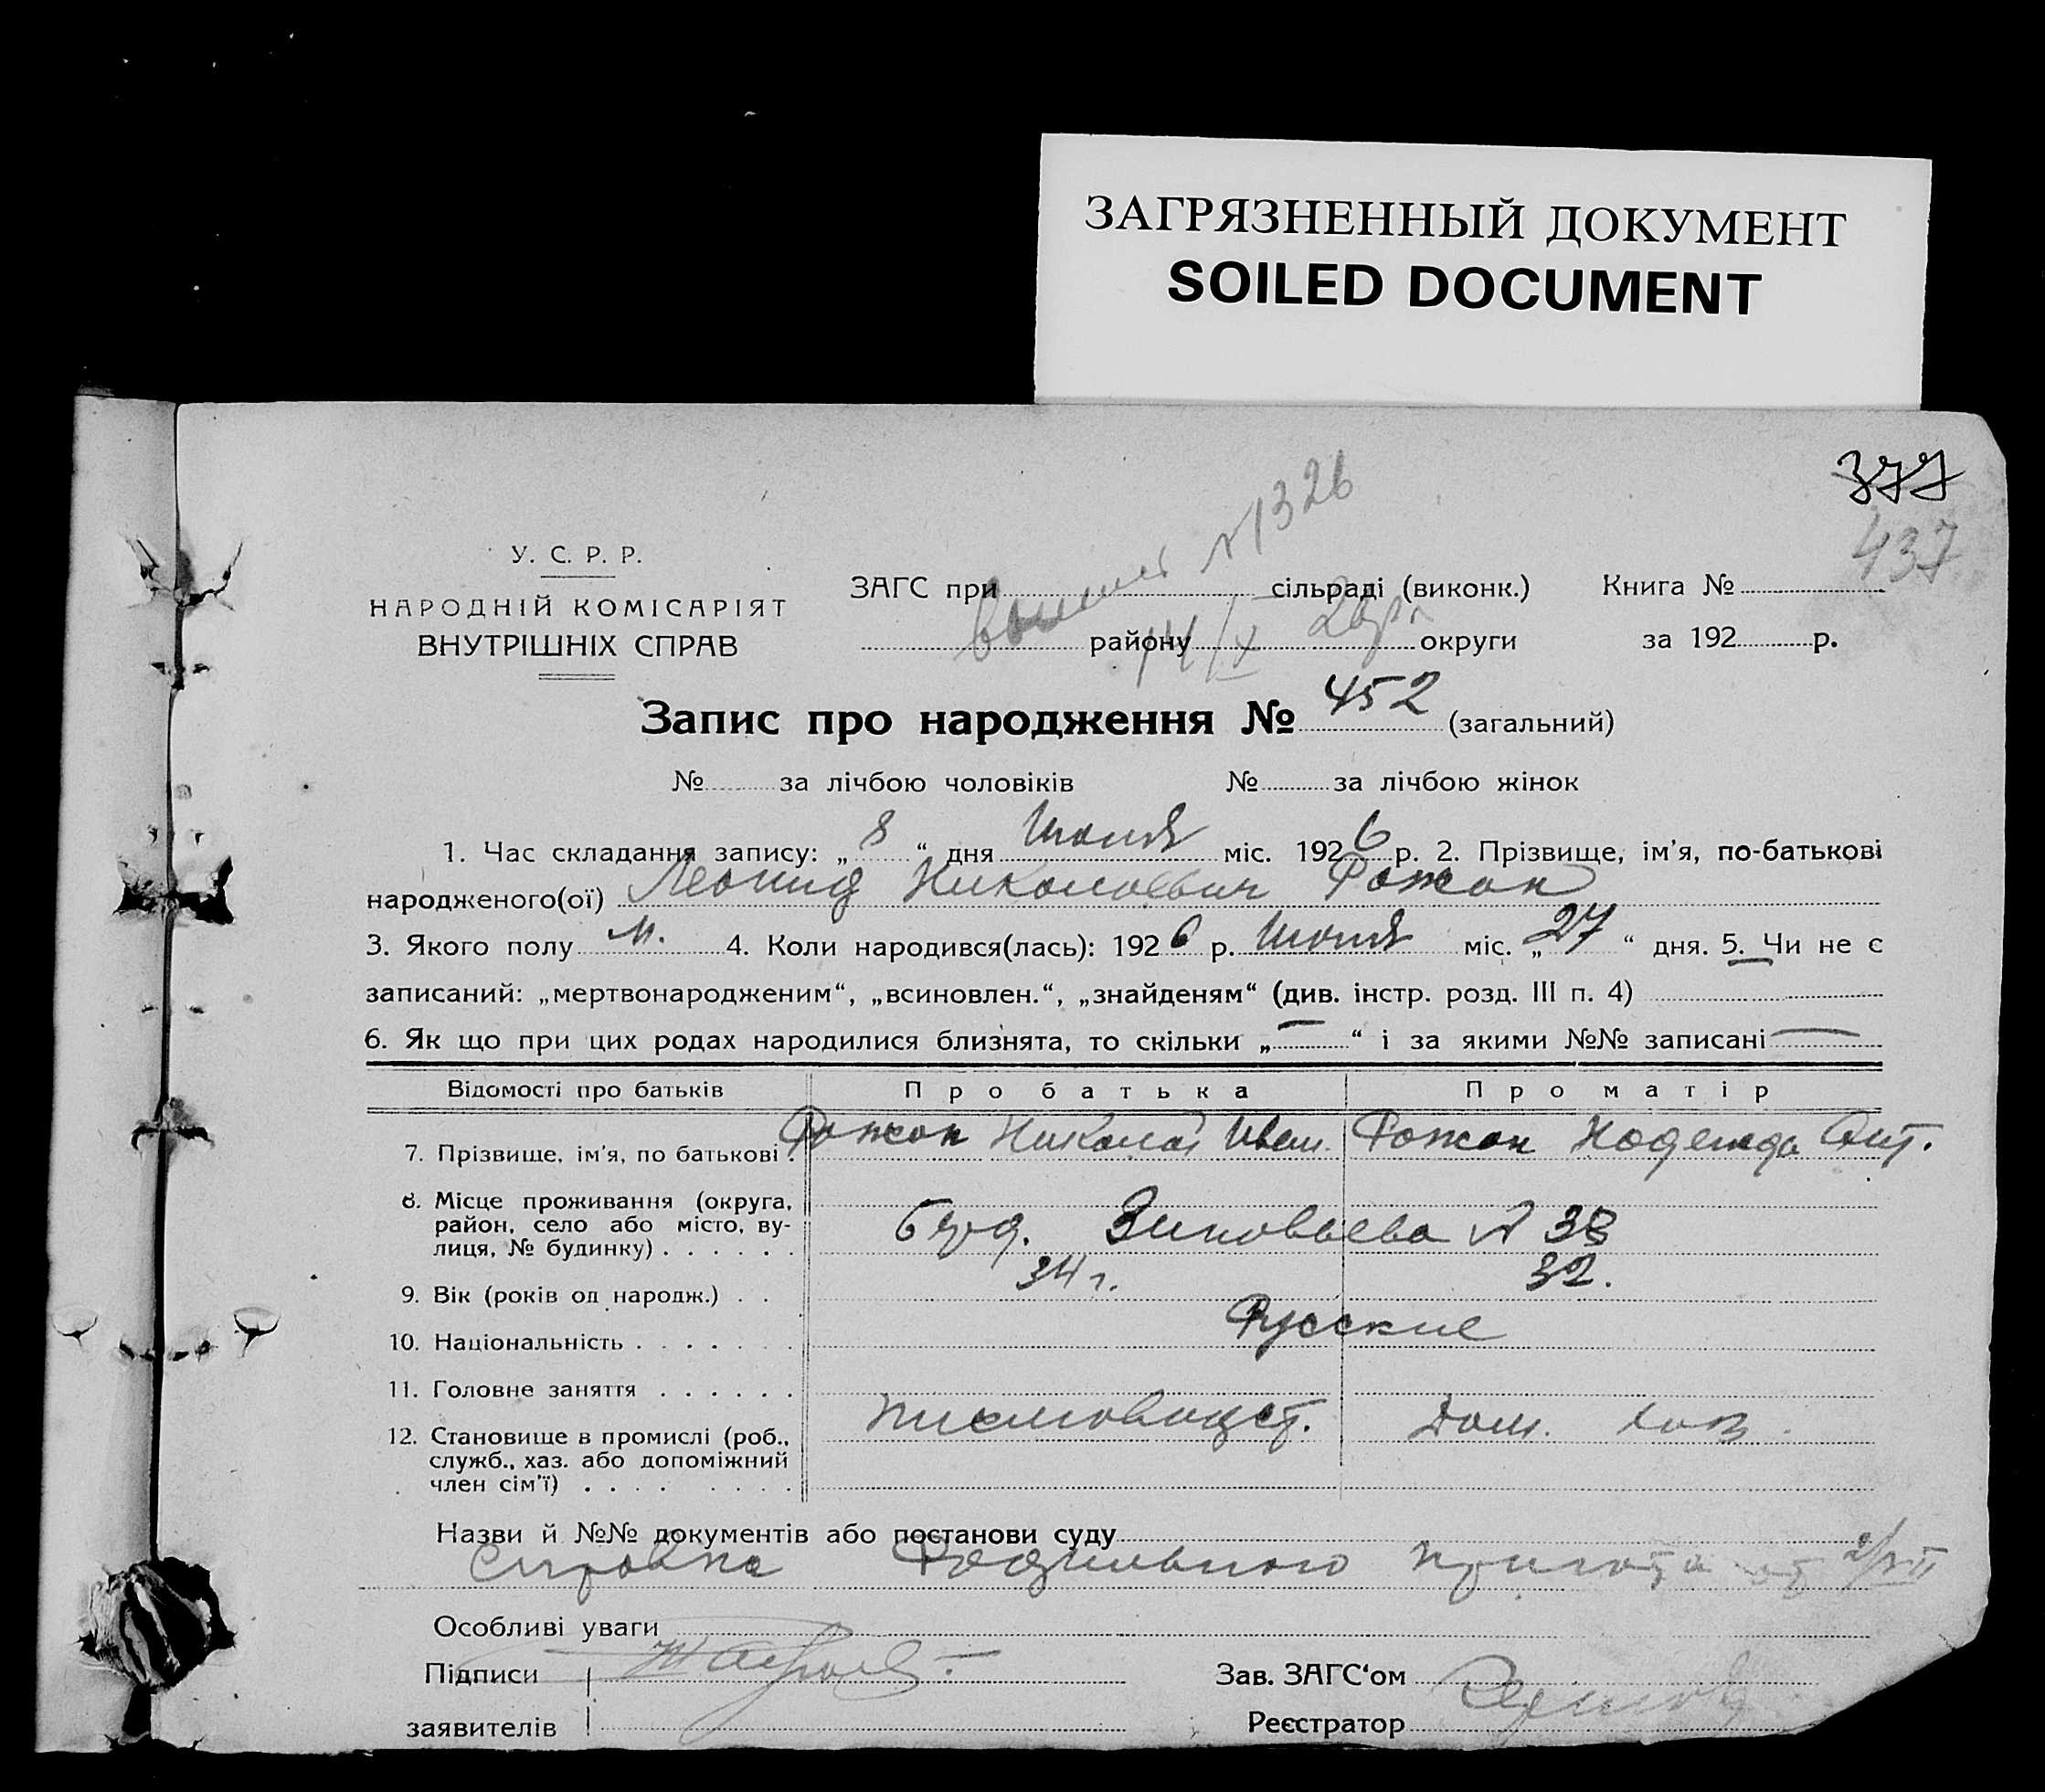 ЗАГРЯЗНЕННЫЙ ДОКУМЕНТ
SOILED DOCUMENT
377
437
№ 1326
У. С. Р. Р.
НАРОДНІЙ КОМІСАРІЯТ
ВНУТРІШНІХ СПРАВ
ЗАГС при сільраді (виконк.) Книга №
району округи за 192 р.
14/X
Запис про народження № 452 (загальний)
№ за лічбою чоловіків № за лічбою жінок
1. Час складання запису: „ 8 “ дня Июля міс. 1926 р. 2. Прізвище, ім’я, по-батькові
народженого(ої) Леонид Николаевич Рожок
3. Якого полу м. 4. Коли народився(лась): 1926 р. міс. „ 27 “ дня. 5. Чи не є
записаний: „мертвонародженим“, „всиновлен.“, „знайденям“ (див. інстр. розд. III п. 4)
6. Як що при цих родах народилися близнята, то скільки „ — “ і за якими №№ записані —
Відомості про батьків Про батька Про матір
7. Прізвище, ім’я, по батькові . Рожок Николай Иван. Рожок Надежда Ант.
8. Місце проживання (округа,
район, село або місто, ву-
лиця, № будинку) . . . . . . Зиновьева № 38
9. Вік (років од народж.) . . 34 г. 32.
10. Національність . . . . . . . Русские
11. Головне заняття . . . . . .
Дом. хоз.
12. Становище в промислі (роб.,
служб., хаз. або допоміжний
член сім’ї) . . . . . . . .
Назви й №№ документів або постанови суду
Справка Родильного приюта от
Особливі уваги
Підписи Зав. ЗАГС‘ом
заявителів Реєстратор